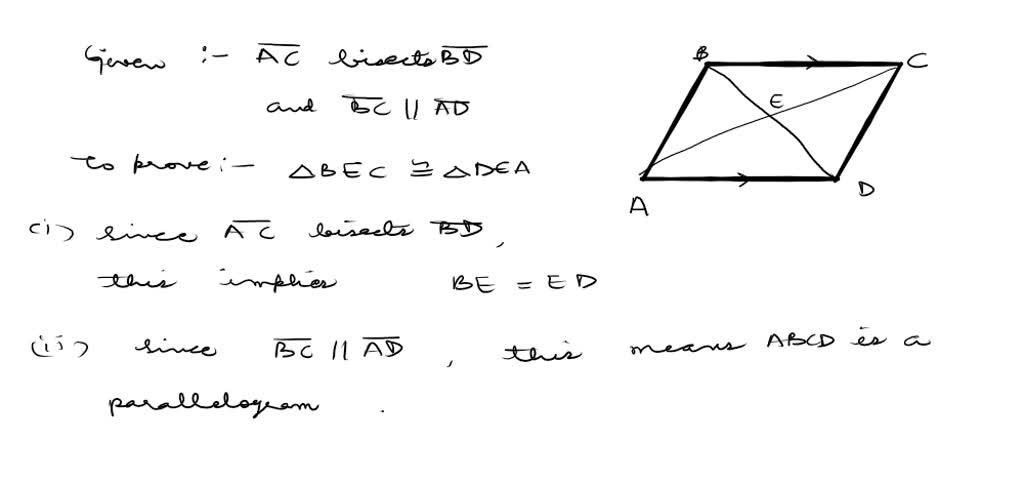 Given :- A̅C̅ bisects B̅D̅
and B̅C̅ || A̅D̅
To prove :- △BEC ≅ △DEA
(i) since A̅C̅ bisects B̅D̅,
this implies BE = ED
(ii) since B̅C̅ || A̅D̅, this means ABCD is a
parallelogram .
B
C
E
A
D